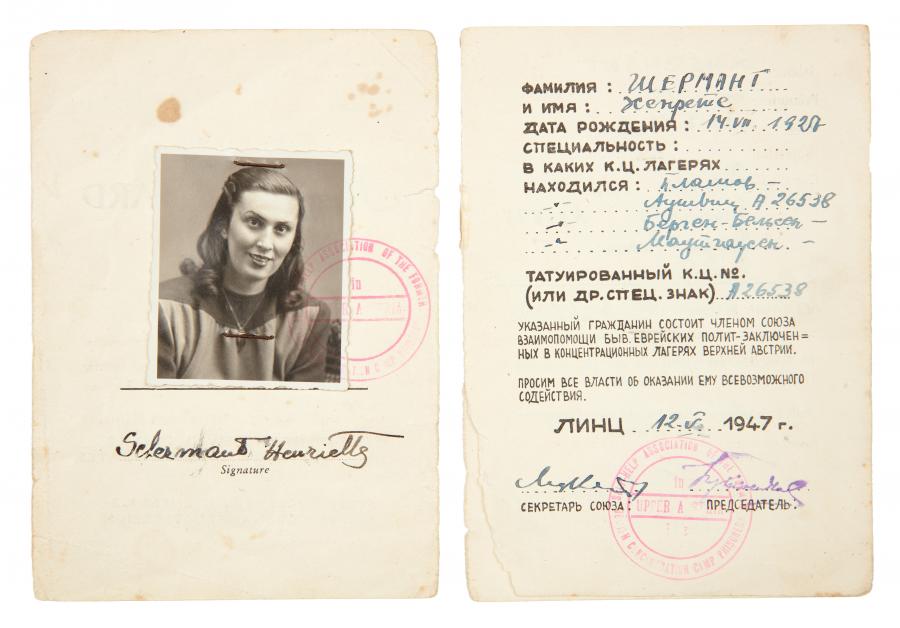 HELP ASSOCIATION OF THE FORMER
in
Schermant Henriette
Signature
ФАМИЛИЯ: ШЕРМАНТ
И ИМЯ:
ДАТА РОЖДЕНИЯ: 14 VII 1927
СПЕЦИАЛЬНОСТЬ:
В КАКИХ К.Ц. ЛАГЕРЯХ
НАХОДИЛСЯ: Плашов –
" Аушвиц А 26538
" Берген-Бельсен –
" Маутгаузен –
ТАТУИРОВАННЫЙ К.Ц.№.
(ИЛИ ДР. СПЕЦ. ЗНАК) А26538
УКАЗАННЫЙ ГРАЖДАНИН СОСТОИТ ЧЛЕНОМ СОЮЗА
ВЗАИМОПОМОЩИ БЫВ. ЕВРЕЙСКИХ ПОЛИТ-ЗАКЛЮЧЕН=
НЫХ В КОНЦЕНТРАЦИОННЫХ ЛАГЕРЯХ ВЕРХНЕЙ АВСТРИИ.
ПРОСИМ ВСЕ ВЛАСТИ ОБ ОКАЗАНИИ ЕМУ ВСЕВОЗМОЖНОГО
СОДЕЙСТВИЯ.
ЛИНЦ 12 1947 г.
HELP ASSOCIATION OF THE
in
UPPER
CONCENTRATION CAMP PRISONERS
СЕКРЕТАРЬ СОЮЗА: ПРЕДСЕДАТЕЛЬ: